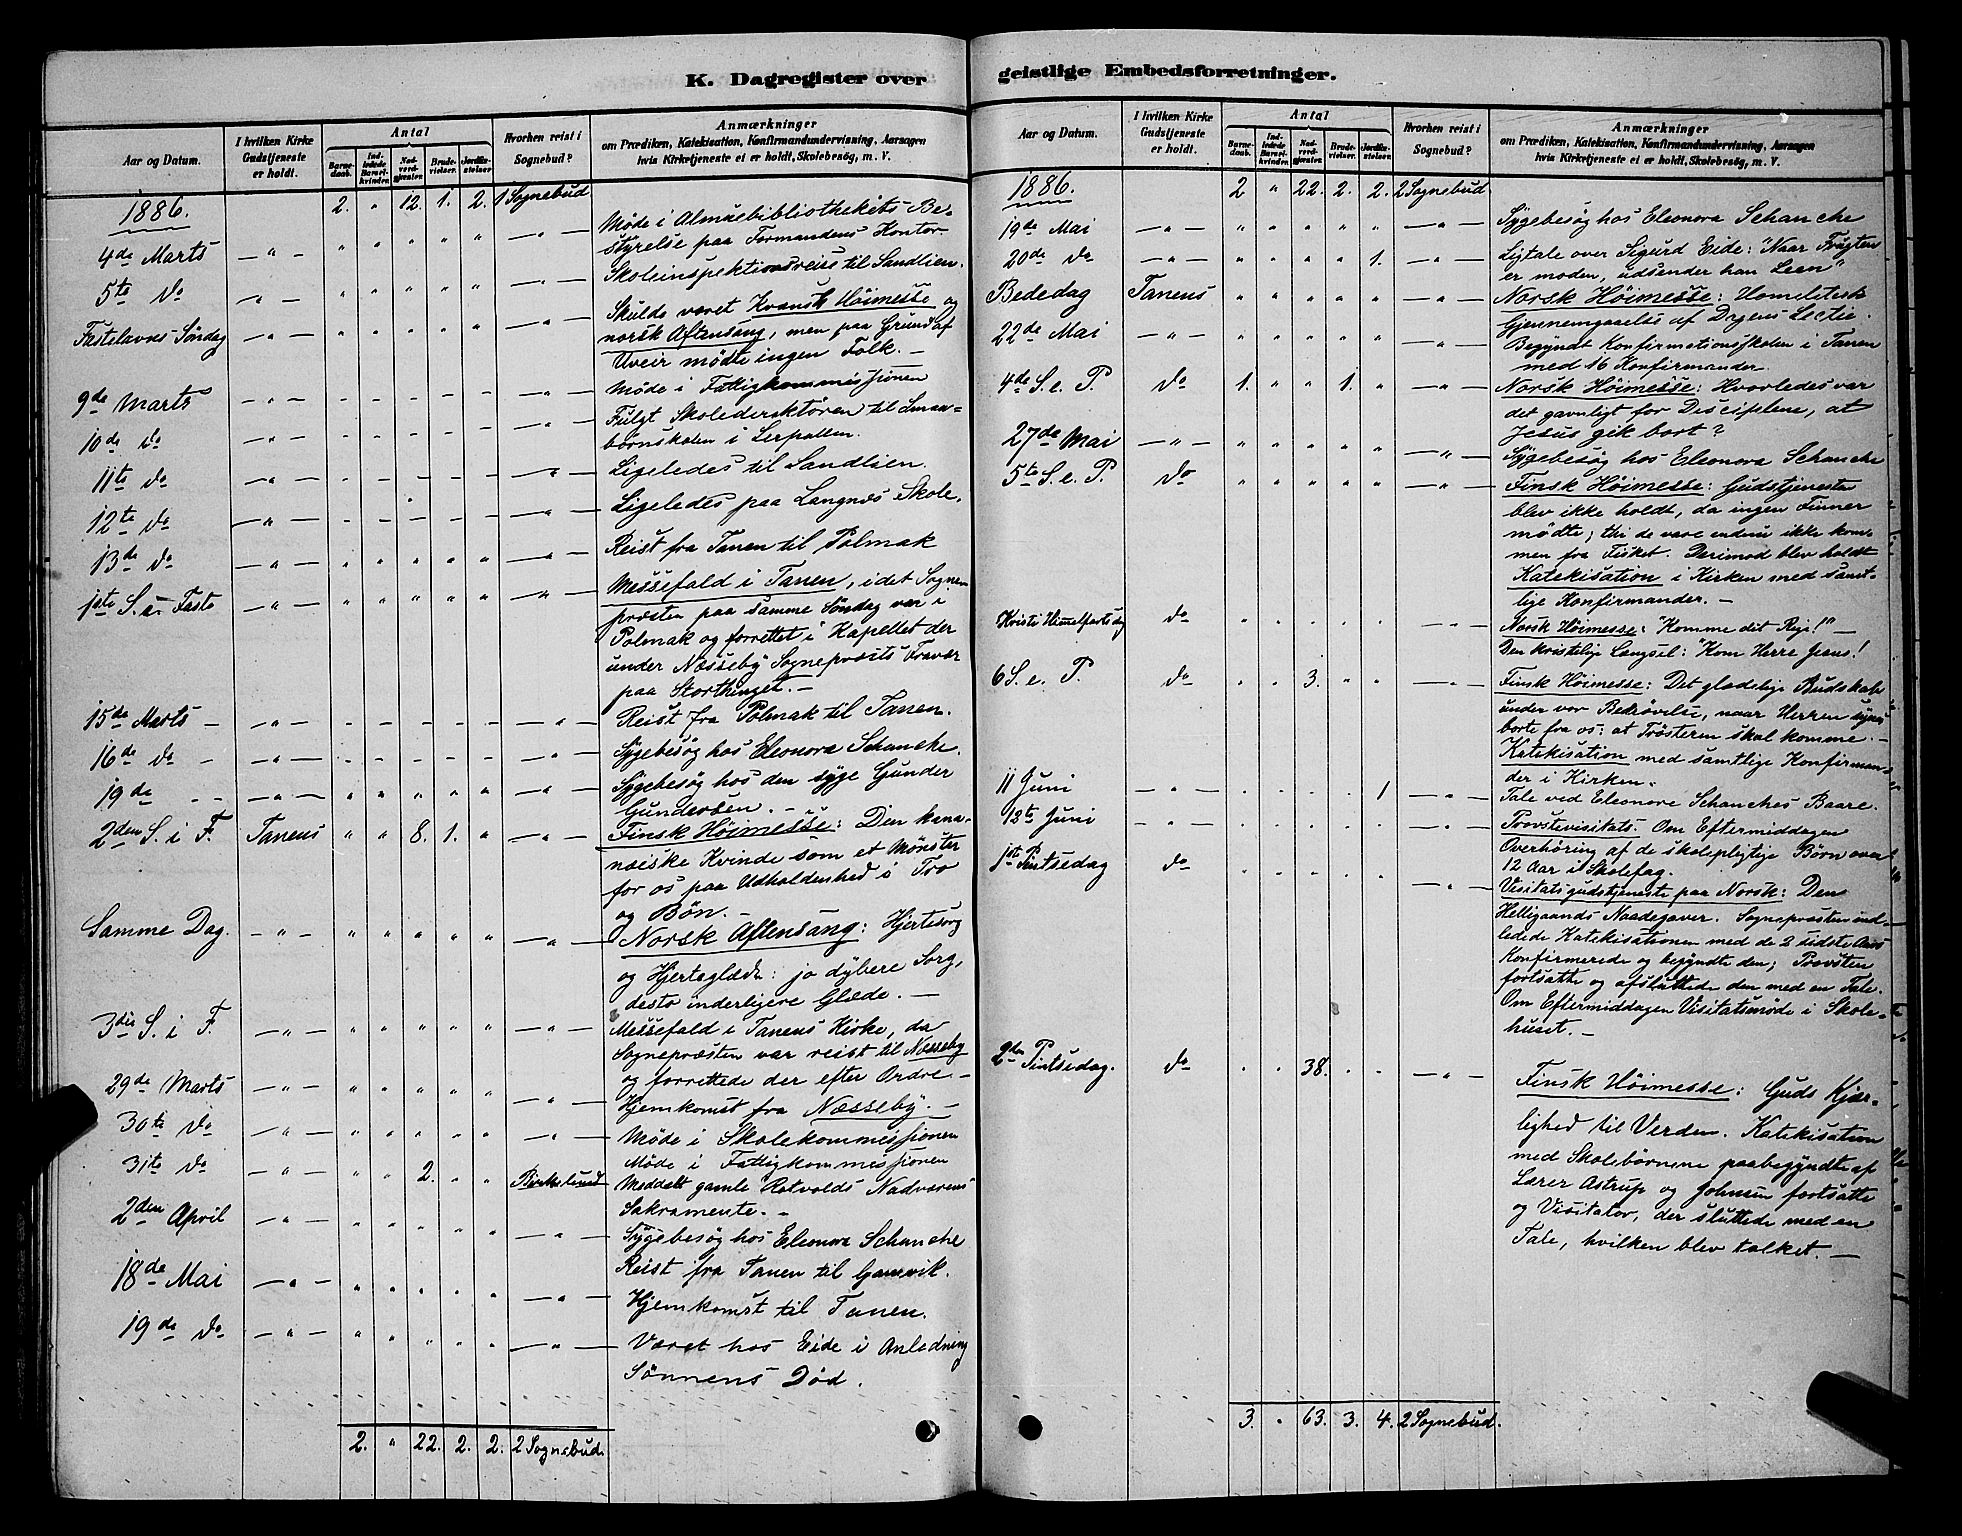 K. Dagregister over
Aar og Datum.
I hvilken Kirke Gudstjeneste er holdt.
Antal
Barnedaab.
Indledede Barselkvinder.
Nadverdgjester.
Brudevielser.
Jordfæstelser.
Hvorhen reist i Sognebud?
Anmærkninger
om Prædiken, Katekisation, Konfirmandundervisning, Aarsagen
hvis Kirketjeneste et er holdt, Skolebesøg, m. V.
1886. 2. " 12. 1. 2. 1 Sognebud
4de Marts Møde i Almuebibliothekets Be-
styrelse paa Formandens Kontor.
5te do Skoleinspektionsreise til Sandlien.
Fastelavns Søndag Skulde været Kvænsk Høimesse og
norsk Aftensang, men paa Grund af
Uveir mødte ingen Folk. —
9de Marts Møde i Fattigkommissionen
10de do Fulgt Skoledirektøren til Smaa-
børnskolen i Lerpollen.
11te do Ligeledes til Sandlien.
12te do Ligeledes paa Langnæs Skole.
13de do Reist fra Tanen til Polmak
1ste S. i Faste Messefald i Tanen, idet Sogne-
præsten paa samme Søndag var i
Polmak og forrettet i Kapellet der
under Næsseby Sognepræsts Fravær
paa Storthinget. —
15de Marts Reist fra Polmak til Tanen.
16de do Sygebesøg hos Eleonora Schanche.
19de Sygebesøg hos den syge Gunder
Gundersen. —
2den S. i F. Tanens " " 8. 1. " Finsk Høimesse: Den kana-
næiske Kvinde som et Mønster
for os paa Udholdenhed i Tro
og Bøn. —
Samme Dag. Norsk Aftensang: Hjertesorg
og Hjerteglæde: jo dybere Sorg,
desto inderligere Glæde. —
3die S. i F. Messefald i Tanens Kirke, da
Sognepræsten var reist til Næsseby
og forrettede der efter Ordre. —
29de Marts Hjemkomst fra Næsseby. —
30te do Møde i Skolekommissionen
31te do Møde i Fattigkommissionen
2. Birkelund Meddelt gamle Rotvolds Nadverens
Sakramente. —
2den April Sygebesøg hos Eleonora Schanche
Reist fra Tanen til Gamvik.
18de Mai Hjemkomst til Tanen.
19de do Været hos Eide i Anledning
Sønnens Død.
2. " 22. 2. 2. 2 Sognebud.
geistlige Embedsforretninger.
Aar og Datum.
I hvilken Kirke Gudstjeneste er holdt.
Antal
Barnedaab.
Indledede Barselkvinder.
Nadverdgjester.
Brudevielser.
Jordfæstelser.
Hvorhen reist i Sognebud?
Anmærkninger
om Prædiken, Katekisation, Konfirmandundervisning, Aarsagen
hvis Kirketjeneste et er holdt, Skolebesøg, m. V.
1886. 2 " 22. 2. 2. 2 Sognebud
19de Mai Sygebesøg hos Eleonora Schanche
20de do 1. Ligtale over Sigurd Eide: "Naar Frugten
er moden, udsender han Leen"
Bededag Tanens Norsk Høimesse: Homiletisk
Gjennemgaaelse af Dagens Lectie.
22de Mai Begyndt Konfirmationsskolen i Tanen
med 16 Konfirmander.
4de S. e. P. do 1. " " 1. " Norsk Høimesse: Hvorledes var
det gavnligt for Disciplene, at
Jesus gik bort?
27de Mai Sygebesøg hos Eleonora Schanche
5te S. e. P. do Finsk Høimesse: Gudstjenesten
blev ikke holdt, da ingen Finner
mødte; thi de vare endnu ikke kom-
men fra Fisket. Derimod blev holdt
Katekisation i Kirken med samt-
lige Konfirmander. —
Kristi Himelfartsdag do Norsk Høimesse: "Komme dit Rige!" —
Den kristelige Længsel: "Kom Herre Jesus!
6 S. e. P. do 3. Finsk Høimesse: Det glædelige Budskab
under vor Bedrøvelse, naar Herren synes
borte fra os: at Trøsteren skal komme. —
Katekisation med samtlige Konfirman-
der i Kirken.
11 Juni 1 Tale ved Eleonore Schanches Baare.
12te Juni Provstevisitats. Om Eftermiddagen
Overhøring af de skolepligtige Børn over
12 Aar i Skolefag.
1ste Pintsedag do Visitatsgudstjeneste paa Norsk: Den
Helligaands Naadegaver. Sognepræsten ind-
ledede Katekisationen med de 2 sidste Aars
Konfirmerede og begyndte den; Provsten
fortsatte og afsluttede den med en Tale.
Om Eftermiddagen Visitatsmøde i Skole-
huset. —
2den Pintsedag. do 38. Finsk Høimesse: Guds Kjær-
lighed til Verden. Katekisation
med Skolebørnene paabegyndte af
Lærer Astrup og Johnsen fortsatte
og Visitator, der sluttede med en
Tale, hvilken blev tolket. —
3. " 63. 3. 4. 2 Sognebud.